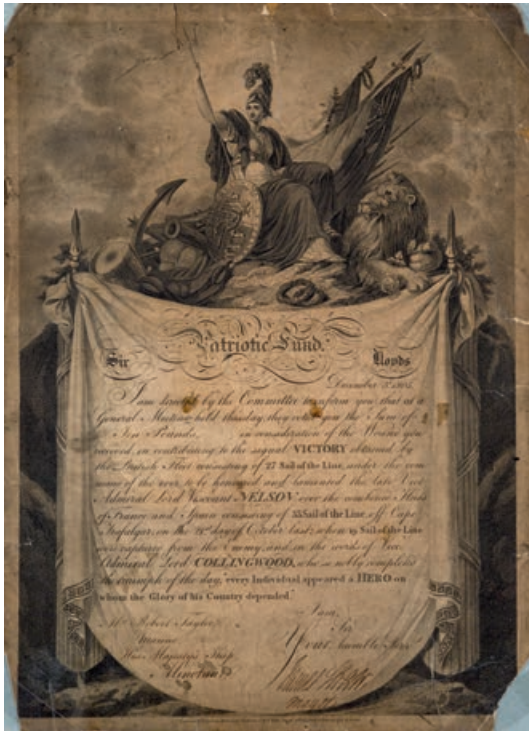 Patriotic Fund.
Sir Lloyds
December 3, 1805.
I am directed by the Committee to inform you, that at a
General Meeting held this day, they voted you the Sum of
Ten Pounds, in consideration of the Wound you
received, in contributing to the signal VICTORY obtained by
the British Fleet consisting of 27 Sail of the Line, under the com
mand of the ever to be honored and lamented the late Vice
Admiral Lord Viscount NELSON over the combined Fleets
of France and Spain consisting of 33 Sail of the Line, off Cape
Trafalgar, on the 21st day of October last; when 19 Sail of the Line
were captured from the Enemy, and in the words of Vice
Admiral Lord COLLINGWOOD, who so nobly completed
the triumph of the day, "every Individual appeared a HERO on
whom the Glory of his Country depended."
Mr. Robert I am,
Marine Sir
His Majesty's Ship Your humble Serv
Minotaur